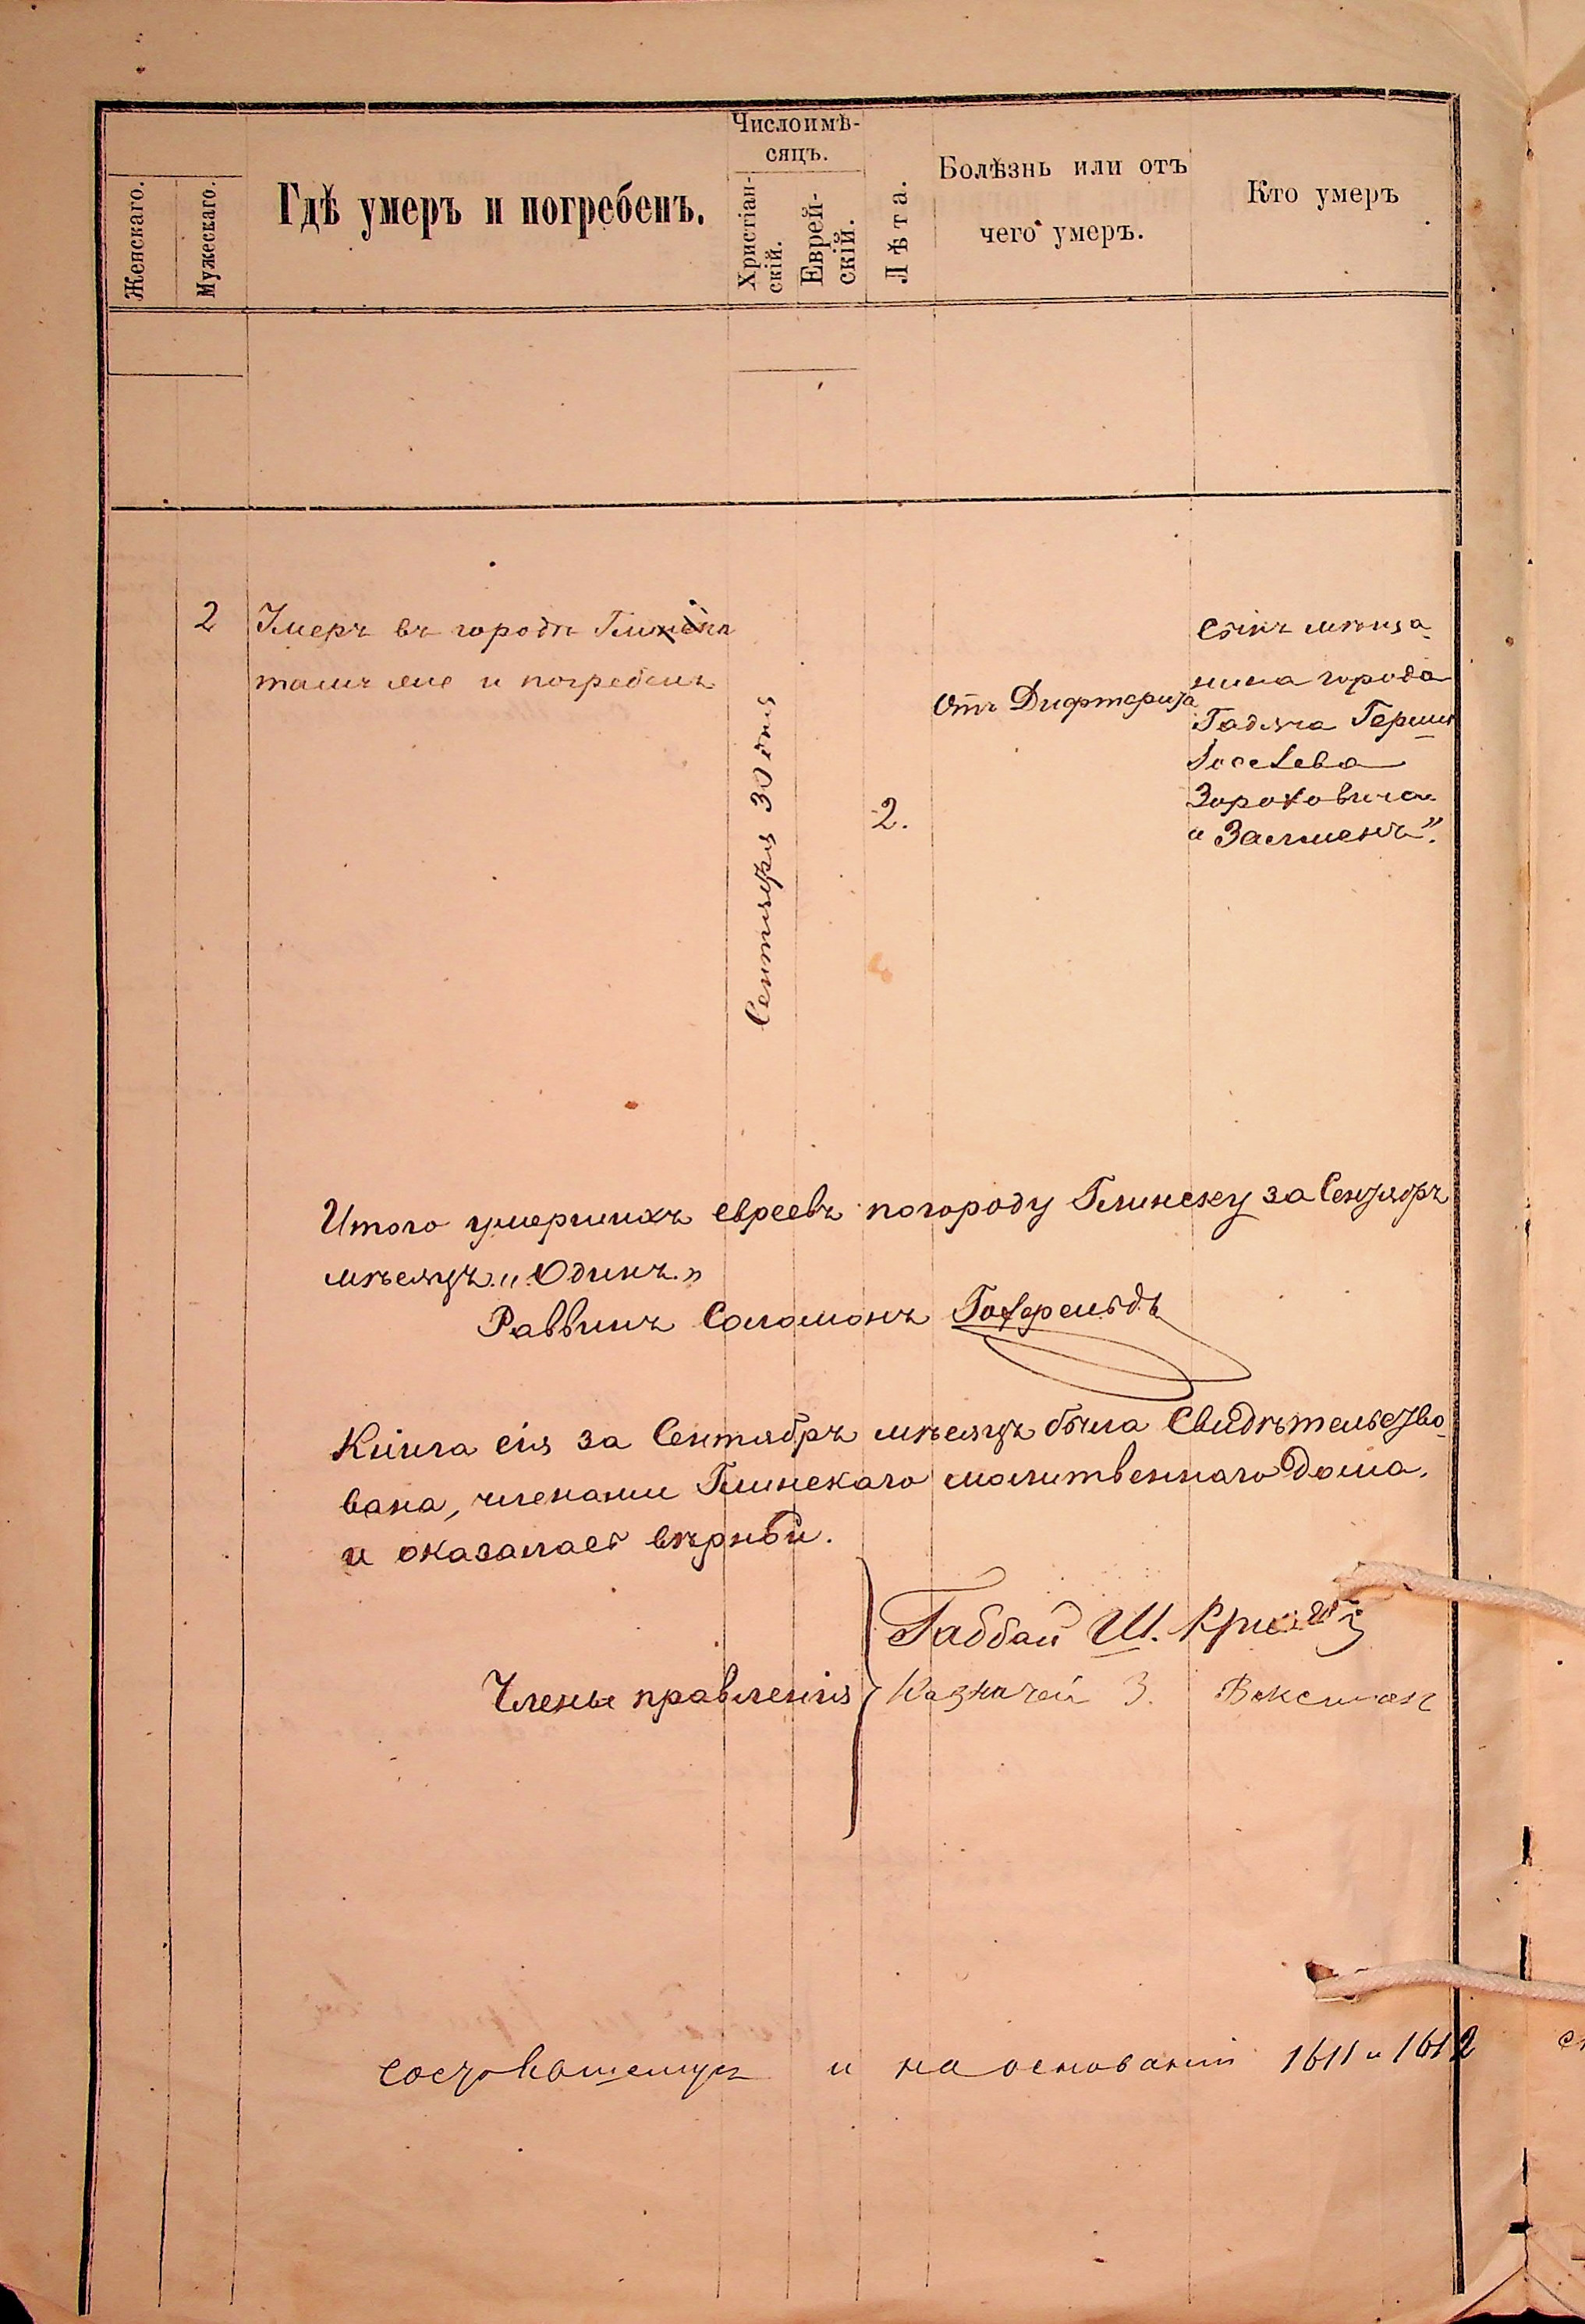 Женскаго.
Мужескаго.
Гдѣ умеръ и погребенъ.
Число и мѣ-
сяцъ.
Христіан-
скій.
Еврей-
скій.
Лѣта.
Болѣзнь или отъ
чего умеръ.
Кто умеръ
2
Умеръ въ городѣ Глинскѣ
тамъ же и погребенъ
Сентября 30 дня
2.
Отъ Дифтерита
Сынъ мѣща-
нина города
Гадяча Герша
Іоселева
Зороховича
„Залменъ".
Итого умершихъ евреевъ по городу Глинску за Сентябръ
мѣсяцъ „Одинъ.„
Раввинъ Соломонъ
Книга сія за Сентябръ мѣсяцъ была Свидѣтельство-
вана, членами Глинскаго молитвеннаго Дома.
и оказалась вѣрной.
Габбай Ш.
Члены правленія
Казначей З. Вексман
и на основаніи 1611 и 1612